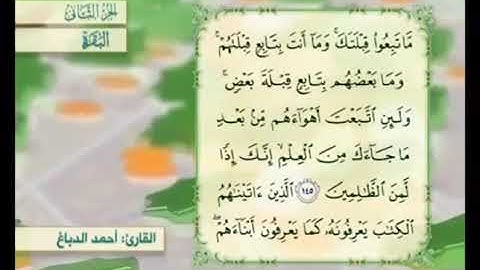 الجزء الثاني
البقرة
مَّا تَبِعُوا۟ قِبْلَتَكَ ۚ وَمَآ أَنتَ بِتَابِعٍ قِبْلَتَهُمْ ۚ
وَمَا بَعْضُهُم بِتَابِعٍ قِبْلَةَ بَعْضٍ ۚ
وَلَئِنِ ٱتَّبَعْتَ أَهْوَآءَهُم مِّنۢ بَعْدِ
مَا جَآءَكَ مِنَ ٱلْعِلْمِ ۙ إِنَّكَ إِذًا
لَّمِنَ ٱلظَّـٰلِمِينَ ﴿١٤٥﴾ ٱلَّذِينَ ءَاتَيْنَـٰهُمُ
ٱلْكِتَـٰبَ يَعْرِفُونَهُۥ كَمَا يَعْرِفُونَ أَبْنَآءَهُمْ ۖ
القارئ: أحمد الدباغ